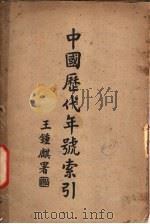 中國歷代年號索引
王鍾麒署